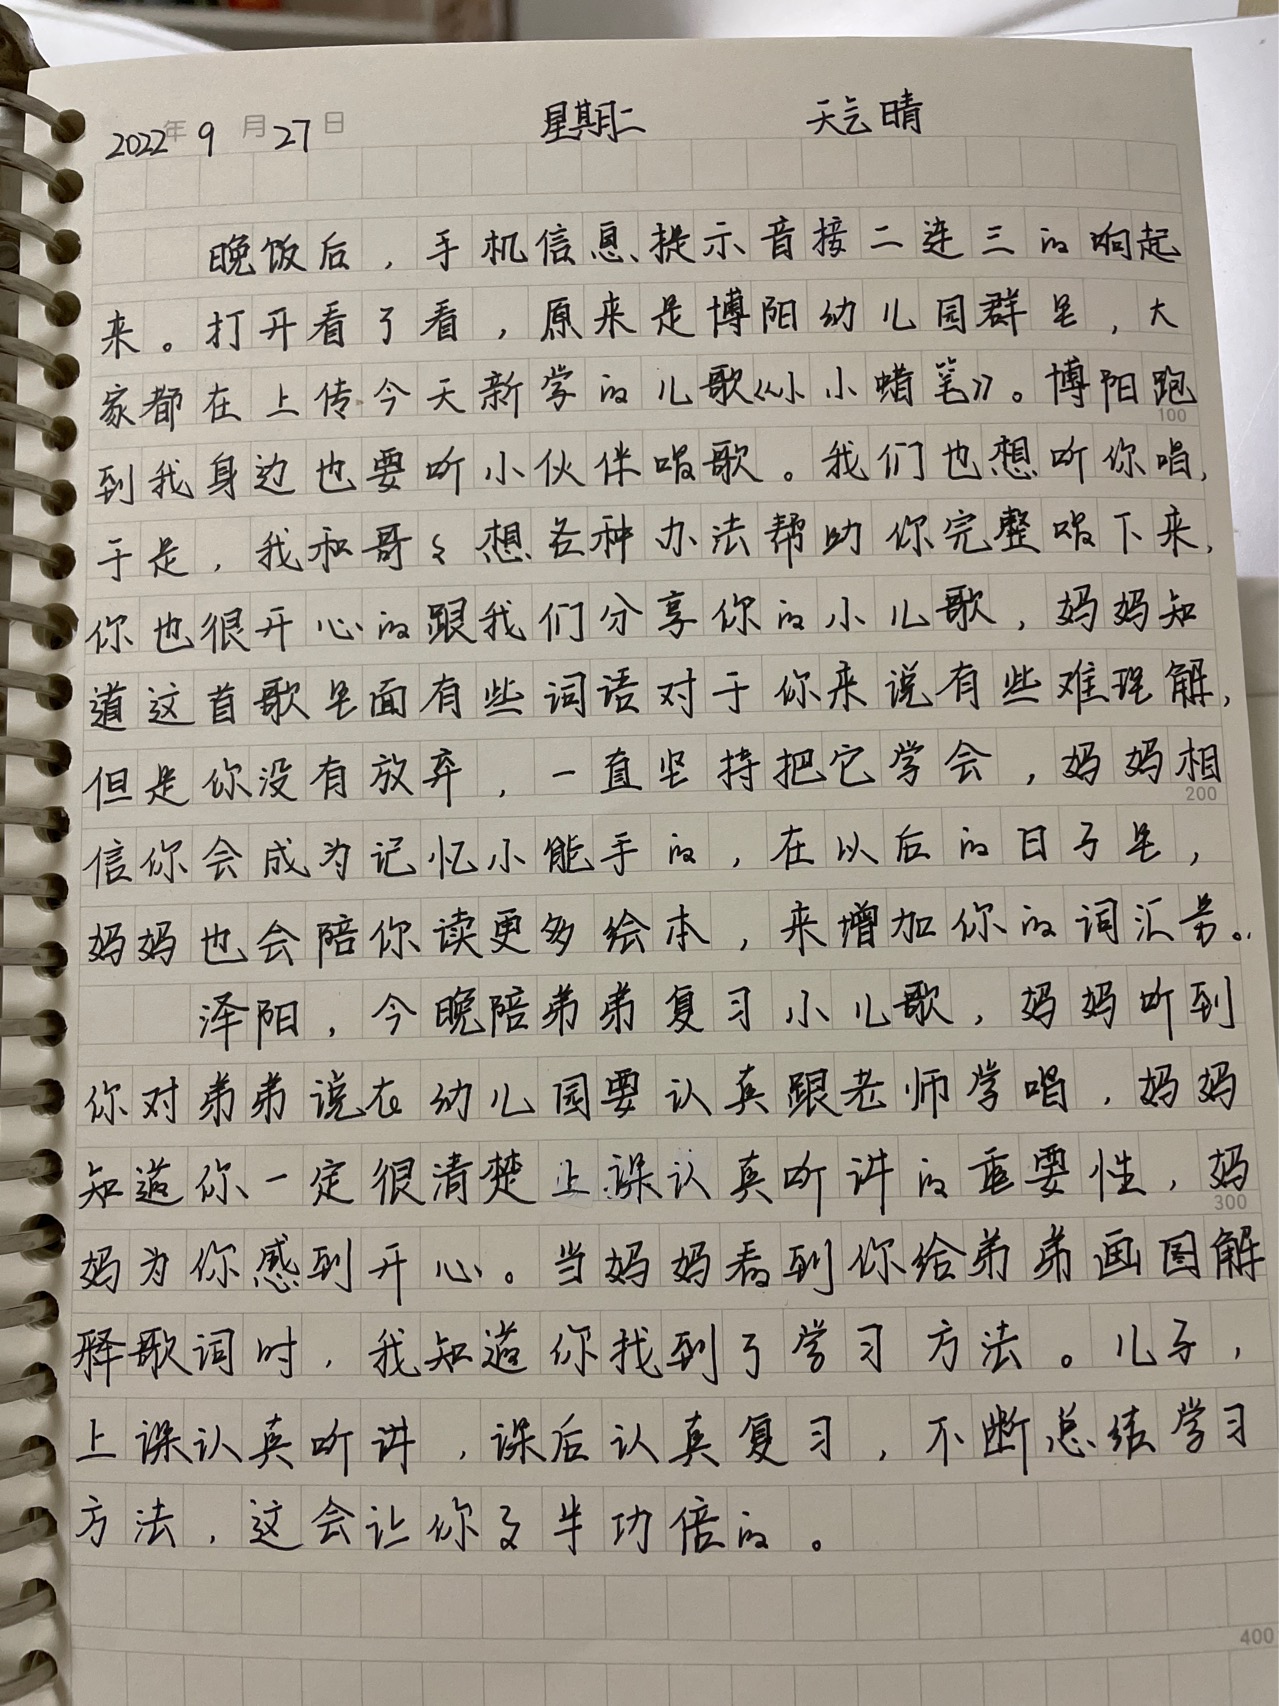 2022年9月27日 星期二 天气晴
晚饭后，手机信息提示音接二连三的响起
来。打开看了看，原来是博阳幼儿园群里，大
家都在上传今天新学的儿歌《小小蜡笔》。博阳跑
100
到我身边也要听小伙伴唱歌。我们也想听你唱，
于是，我和哥々想各种办法帮助你完整唱下来，
你也很开心的跟我们分享你的小儿歌，妈妈知
道这首歌里面有些词语对于你来说有些难理解，
但是你没有放弃，一直坚持把它学会，妈妈相
200
信你会成为记忆小能手的，在以后的日子里，
妈妈也会陪你读更多绘本，来增加你的词汇量。
泽阳，今晚陪弟弟复习小儿歌，妈妈听到
你对弟弟说在幼儿园要认真跟老师学唱，妈妈
知道你一定很清楚上课认真听讲的重要性，妈
300
妈为你感到开心。当妈妈看到你给弟弟画图解
释歌词时，我知道你找到了学习方法。儿子，
上课认真听讲，课后认真复习，不断总结学习
方法，这会让你事半功倍的。
400